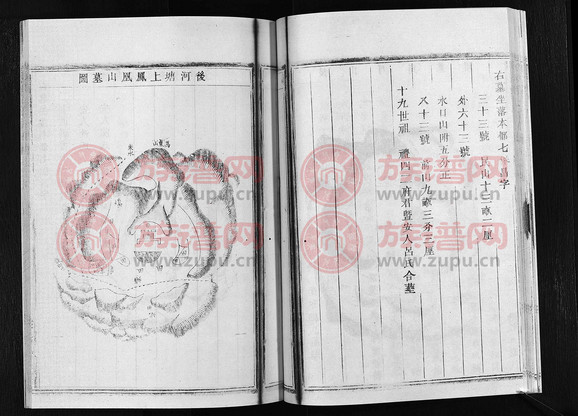 右墓坐落本都七 昌字
三十三號 山十三畝二厘
外六十三號
水口山附五分正
又十三號 山九畝三分三厘
十九世祖 府君暨安人呂氏合墓
後河塘上鳳凰山墓圖
族譜网
www.zupu.cn
族譜网
www.zupu.cn